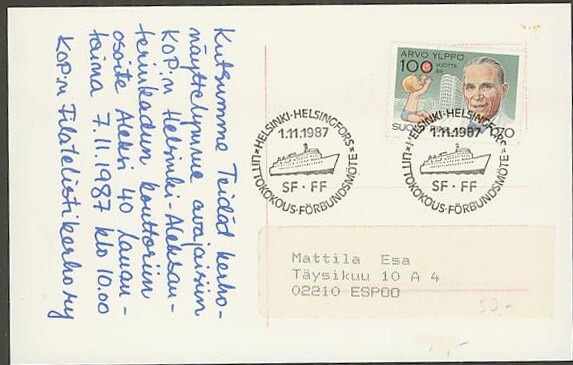 Kutsumme Teidät kerho-
näyttelymme avajaisiin
KOP:n Helsinki-Aleksan-
terinkadun konttoriin
osoite Aleksi 40 lauan-
taina 7.11.1987 klo 10.00
KOP:n Filatelistikerho ry
ARVO YLPPÖ
100 VUOTTA
ÅR
SUOMI
1,70
HELSINKI-HELSINGFORS
1.11.1987
SF·FF
LIITTOKOKOUS·FÖRBUNDSMÖTE
HELSINKI-HELSINGFORS
1.11.1987
SF·FF
LIITTOKOKOUS·FÖRBUNDSMÖTE
Mattila Esa
Täysikuu 10 A 4
02210 ESPOO
50.-